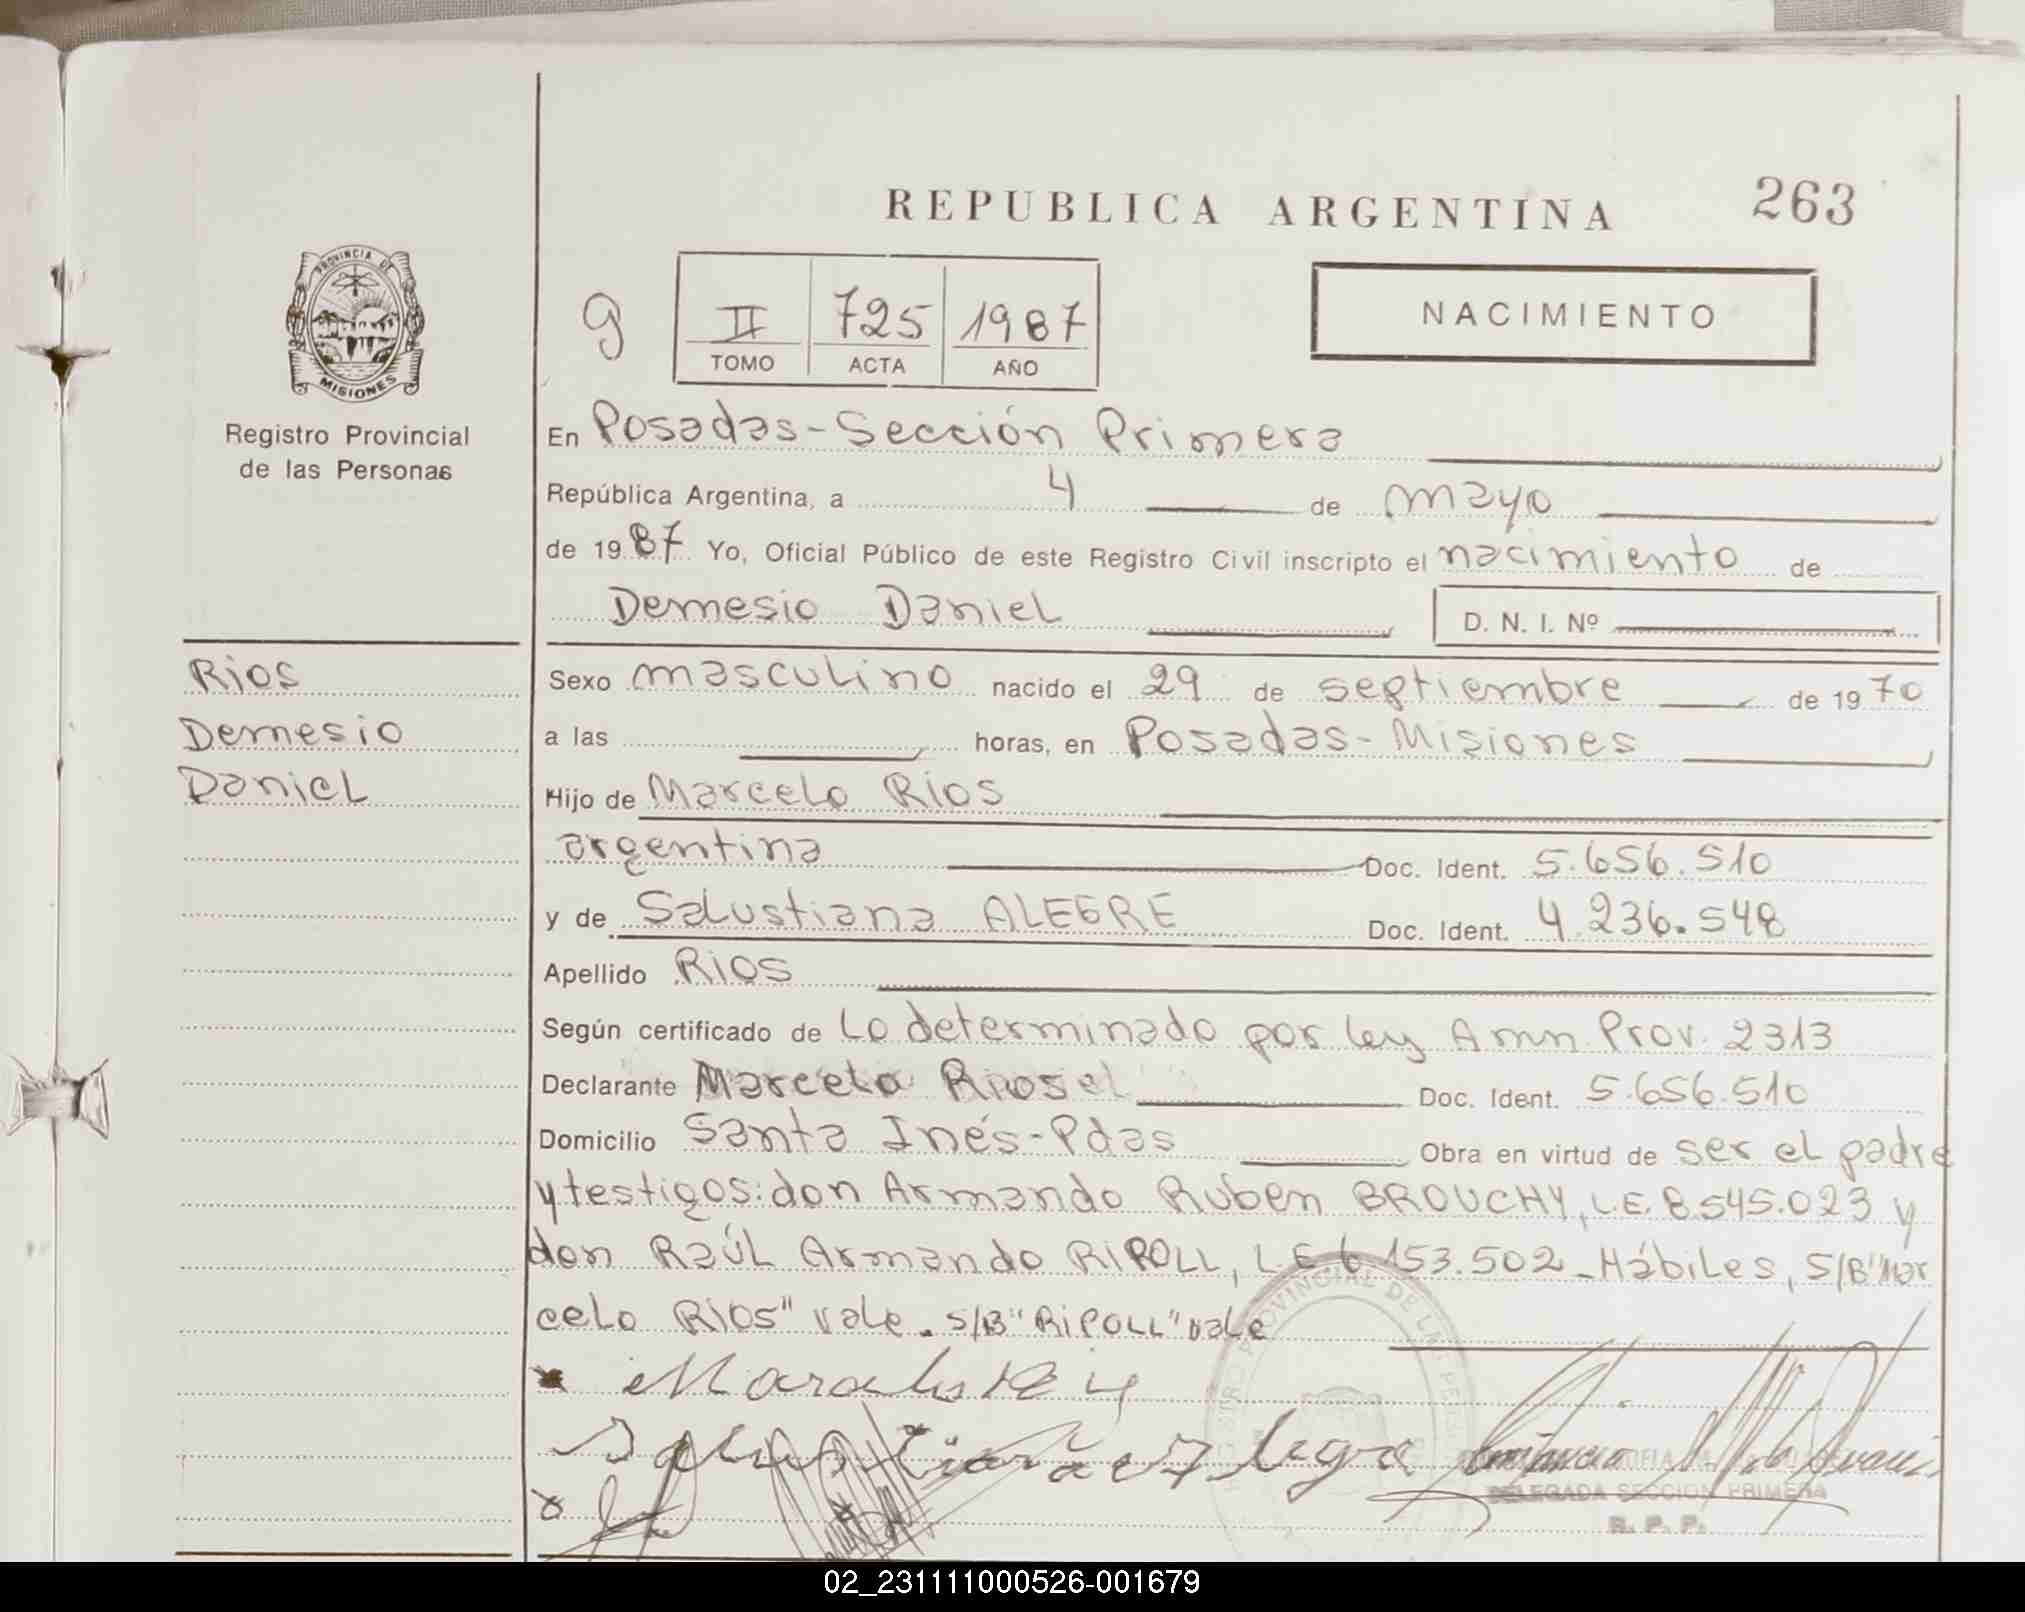 REPUBLICA ARGENTINA 263
PROVINCIA DE
MISIONES
Registro Provincial
de las Personas
g
II 725 1987
TOMO ACTA AÑO
NACIMIENTO
En Posadas-Sección Primera
República Argentina, a 4 de mayo
de 1987 Yo, Oficial Público de este Registro Civil inscripto el nacimiento de
Demesio Daniel D. N. I. Nº
Rios
Demesio
Daniel
Sexo masculino nacido el 29 de septiembre de 1970
a las horas, en Posadas-Misiones
Hijo de Marcelo Rios
argentina Doc. Ident. 5.656.510
y de Salustiana ALEGRE Doc. Ident. 4.236.548
Apellido Rios
Según certificado de Lo determinado por ley Amn. Prov. 2313
Declarante Marcelo Rios el Doc. Ident. 5.656.510
Domicilio Santa Inés-Pdas Obra en virtud de ser el padre
y testigos: don Armando Ruben BROUCHY, L.E. 8.545.023 y
don Raúl Armando RIPOLL, L.E. 6.153.502_Hábiles, S/B"Mar
celo Rios" vale. S/B"RIPOLL" vale
DELEGADA SECCION PRIMERA
R. P. P.
02_231111000526-001679